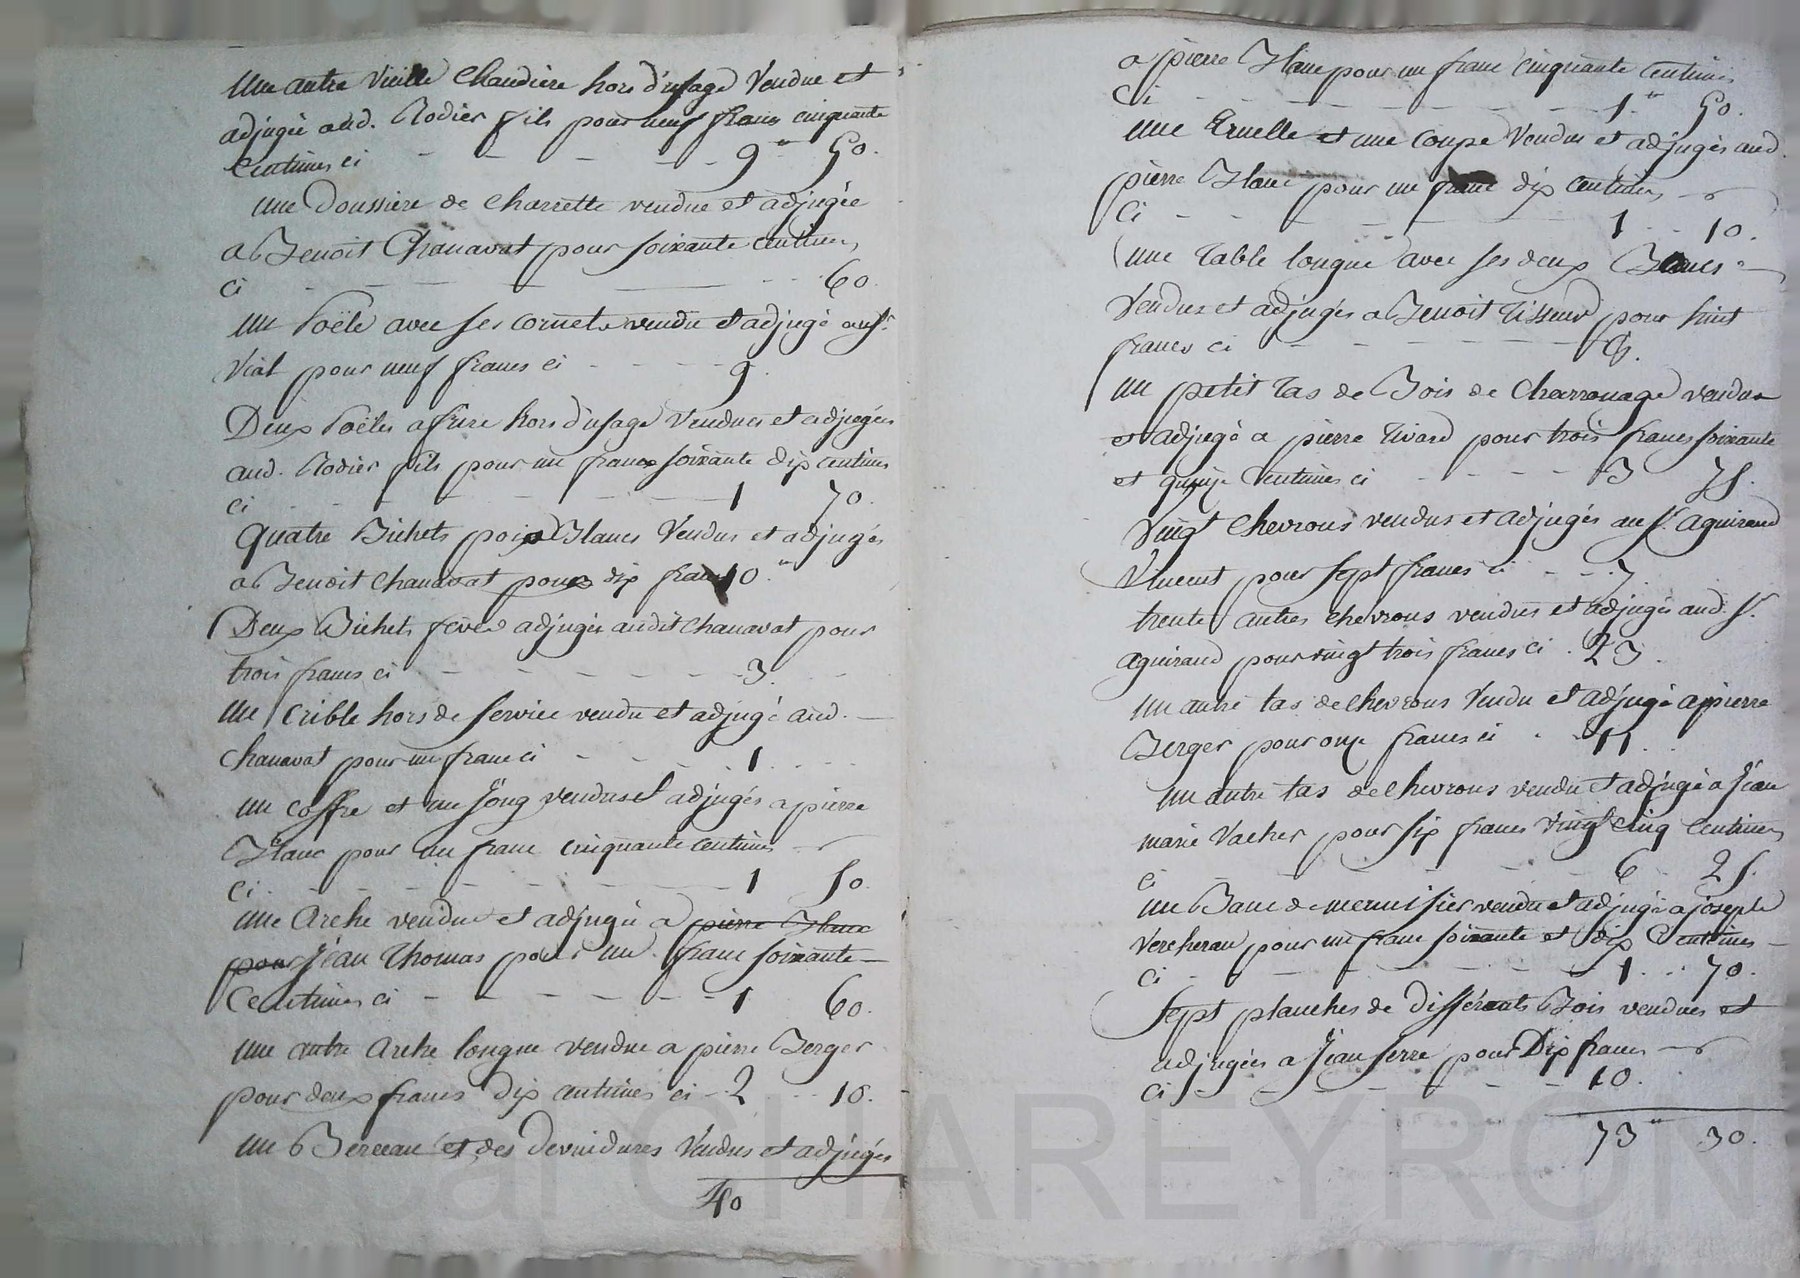 Une autre vieille chaudiere hors d'usage vendue et
adjugée aud. Rodier fils pour neuf francs cinquante
centimes ci - - - - - - 9 " 50.
une Doussiere de charrette vendue et adjugée
a Benoit Chanavat pour soixante centimes,
ci - - - - 60.
un Poële avec ses cornets vendu et adjugé au sr.
Vial pour neuf francs ci - - - - 9.
Deux Poëles a frire hors d'usage vendues et adjugées
aud. Rodier fils pour un franc soixante dix centimes
ci - - - - - 1 70.
quatre Bichets pois Blancs vendus et adjugés
a Benoit chanavat pour dix francs 10. "
Deux Bichets feves adjugés audit chanavat pour
trois francs ci - - - - - - 3.
un crible hors de service vendu et adjugé aud. -
chanavat pour un franc ci - - - - 1 - - - -
un coffre et un Joug vendus et adjugés a pierre
Blanc pour un franc cinquante centimes
ci. - - - - - - 1 50.
une Arche vendue et adjugée a pierre Blanc
pour Jean Thomas pour un franc soixante -
centimes ci - - - - - - 1 60.
une autre Arche longue vendue a pierre Berger
pour deux francs dix centimes ci - 2 - - 10.
un Berceau et des devuidures vendus et adjugés
40
a pierre Blanc pour un franc cinquante centimes
ci - - - - - - 1 " 50.
une Truelle et une coupe vendus et adjugés aud.
pierre Blanc pour un franc dix centimes
ci - - - - - 1 - - 10.
une table longue avec ses deux Bancs -
vendus et adjugés a Benoit Tisseur pour huit
francs ci - - - - - - 8.
un petit tas de Bois de charronage vendu
et adjugé a pierre Rivard pour trois francs soixante
et quinze centimes ci - - - - 3 75.
vingt chevrons vendus et adjugés au Sr. aguiraud
Vincent pour sept francs ci - - 7
trente autres chevrons vendus et adjugés aud. Sr.
aguiraud pour vingt trois francs ci . 23.
un autre tas de chevrons vendu et adjugé a pierre
Berger pour onze francs ci - - 11.
un autre tas de chevrons vendu et adjugé a Jean
marie Vacher pour six francs vingt cinq centimes
ci - - - - - 6 25.
un Banc de menuisier vendu et adjugé a joseph
Vercherau pour un franc soixante et dix centimes -
ci - - - - - - 1 . . 70.
Sept planches de différents Bois vendues et
adjugées a Jean Serre pour Dix francs
ci - - - - - - 10.
73 " 30.
CHAREYRON